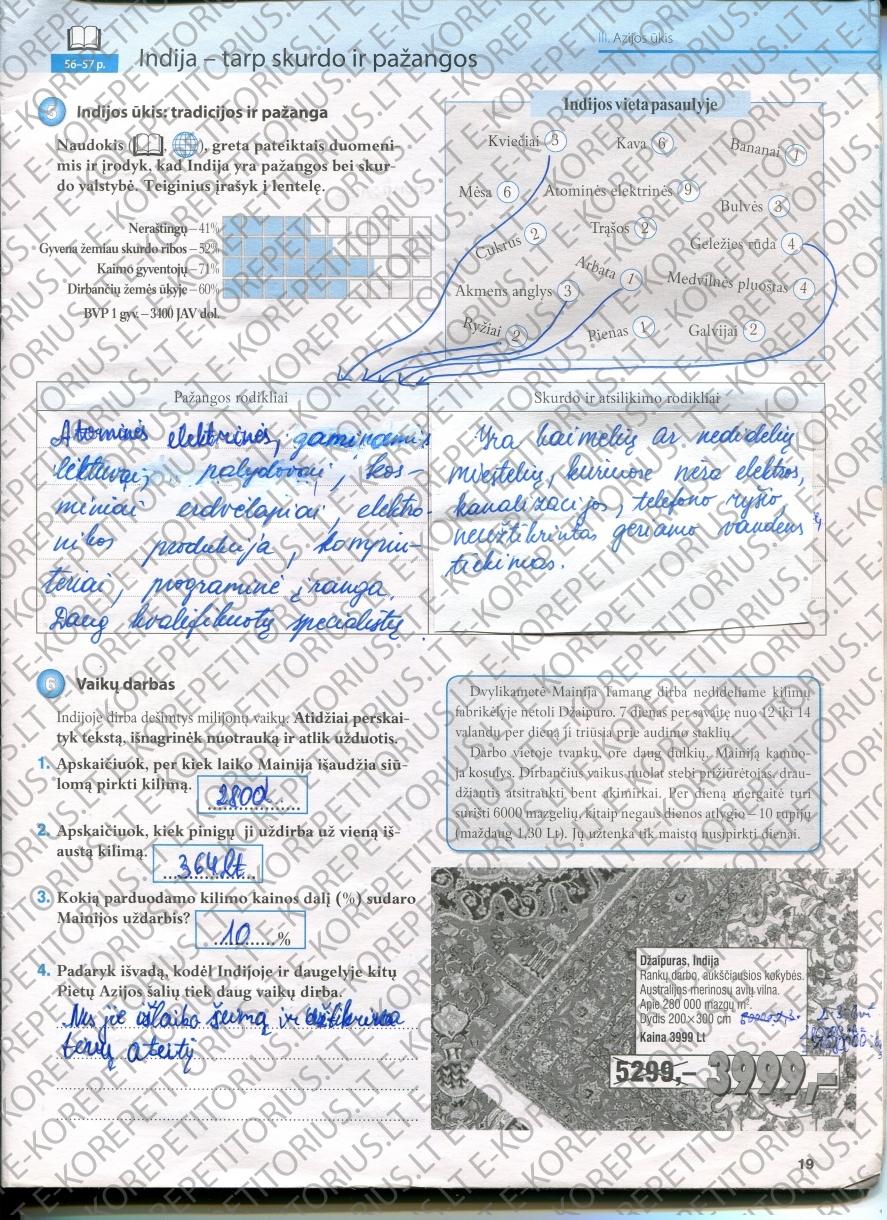 III. Azijos ūkis
56–57 p.
Indija – tarp skurdo ir pažangos
5 Indijos ūkis: tradicijos ir pažanga
Naudokis ( , ), greta pateiktais duomeni-
mis ir įrodyk, kad Indija yra pažangos bei skur-
do valstybė. Teiginius įrašyk į lentelę.
Neraštingų – 41%
Gyvena žemiau skurdo ribos – 52%
Kaimo gyventojų – 71%
Dirbančių žemės ūkyje – 60%
BVP 1 gyv. – 3400 JAV dol.
Indijos vieta pasaulyje
Kviečiai 3
Kava 6
Bananai 1
Mėsa 6
Atominės elektrinės 9
Bulvės 3
Cukrus 2
Trąšos 2
Geležies rūda 4
Arbata 1
Medvilnės pluoštas 4
Akmens anglys 3
Ryžiai 2
Pienas 1
Galvijai 2
Pažangos rodikliai
Atominės elektrinės, gaminamis
lėktuvai, palydovai, kos-
miniai erdvėlapiai, elektro-
nikos produkcija, kompiu-
teriai, programinė įranga.
Daug kvalifikuotų specialistų.
Skurdo ir atsilikimo rodikliai
Yra kaimelių ar nedidelių
miestelių, kuriuose nėra elektros,
kanalizacijos, telefono ryšio,
neužtikrintas geriamo vandens
tiekimas.
6 Vaikų darbas
Indijoje dirba dešimtys milijonų vaikų. Atidžiai perskai-
tyk tekstą, išnagrinėk nuotrauką ir atlik užduotis.
1. Apskaičiuok, per kiek laiko Mainija išaudžia siū-
lomą pirkti kilimą.
280d
2. Apskaičiuok, kiek pinigų ji uždirba už vieną iš-
austą kilimą.
364Lt
3. Kokią parduodamo kilimo kainos dalį (%) sudaro
Mainijos uždarbis?
10 %
4. Padaryk išvadą, kodėl Indijoje ir daugelyje kitų
Pietų Azijos šalių tiek daug vaikų dirba.
Nes jie išlaiko šeimą ir užtikrina
tėvų ateitį
Dvylikametė Mainija Tamang dirba nedideliame kilimų
fabrikėlyje netoli Džaipuro. 7 dienas per savaitę nuo 12 iki 14
valandų per dieną ji triūsia prie audimo staklių.
Darbo vietoje tvanku, ore daug dulkių, Mainiją kamuo-
ja kosulys. Dirbančius vaikus nuolat stebi prižiūrėtojas, drau-
džiantis atsitraukti bent akimirkai. Per dieną mergaitė turi
surišti 6000 mazgelių, kitaip negaus dienos atlygio – 10 rupijų
(maždaug 1,30 Lt). Jų užtenka tik maisto nusipirkti dienai.
Džaipuras, Indija
Rankų darbo, aukščiausios kokybės.
Australijos merinosų avių vilna.
Apie 280 000 mazgų m².
Dydis 200×300 cm
Kaina 3999 Lt
5299,–
3999,–
19
E-KOREPETITORIUS.LT